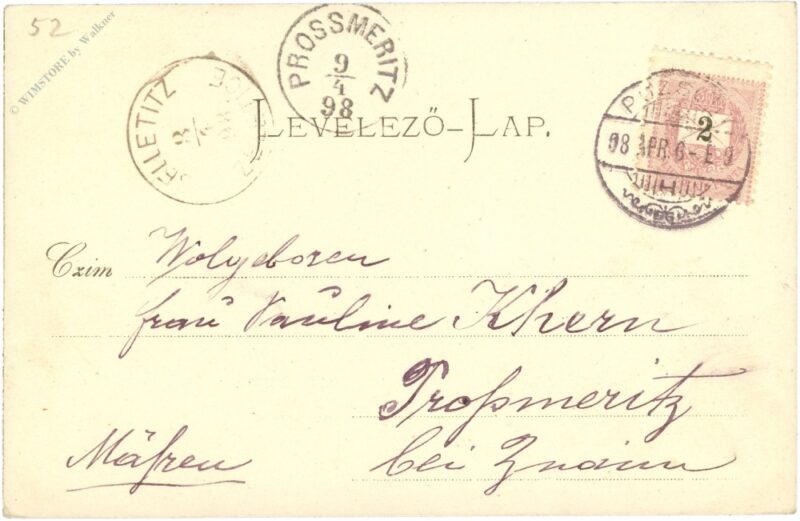 52
© WIMSTORE by Walkner
PROSSMERITZ
9/4
98
SELLETITZ
LEVELEZŐ-LAP.
2
98 APR. 6
Czim
Wolgeboren
frau Pauline Khern
Proßmeritz
Mähren
bei Znaim